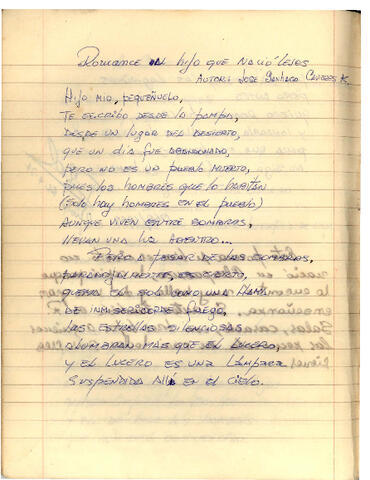 Romance al hijo que nació lejos
AUTOR: JOSÉ Santiago
Hijo mio, pequeñuelo,
Te escribo desde la pampa,
Desde un lugar del desierto,
que un dia fue abandonado,
pero no es un pueblo muerto,
pues los hombres que lo habitan
(Solo hay hombres en el pueblo)
Aunque viven entre sombras,
llevan una luz adentro...
Pero a pesar de las sombras,
es cierto,
quema el sol como una llama
de fuego,
las estrellas silenciosas
alumbran más que el lucero,
y el lucero es una lámpara
suspendida allá en el cielo.